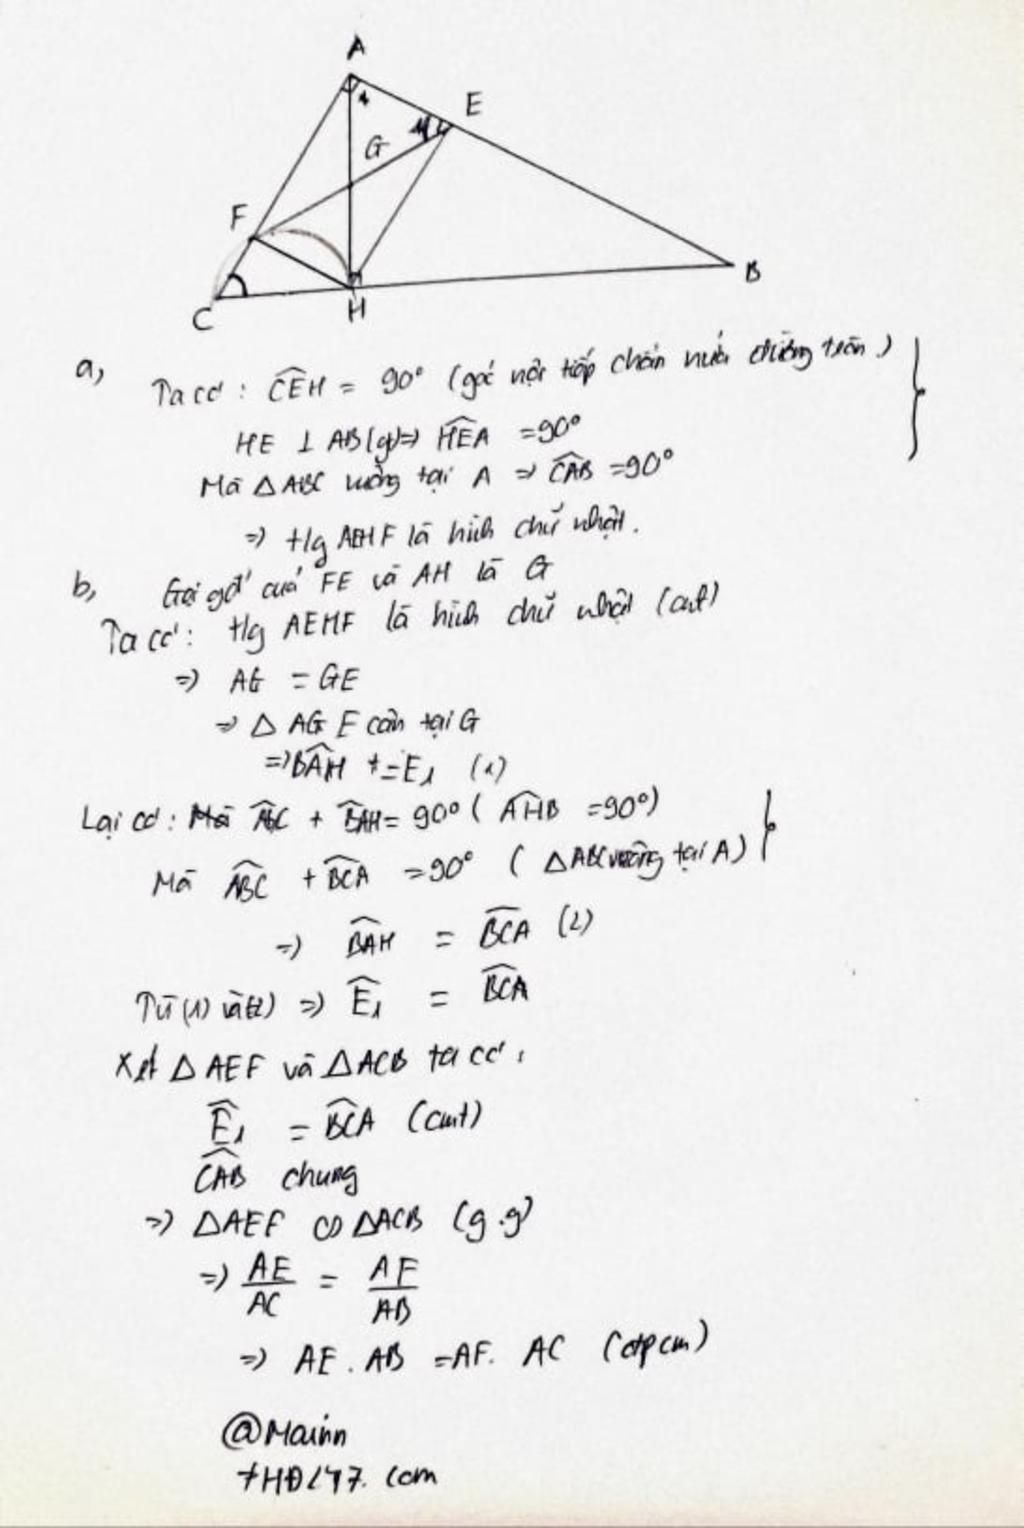 A
E
G
F
B
C
H
a, Ta có: CEH = 90° (góc nội tiếp chắn nửa đường tròn)
HE ⊥ AB (gt) => HEA = 90°
Mà △ABC vuông tại A => CAB = 90°
=> t/g AEHF là hình chữ nhật.
b, Gọi gđ của FE và AH là G
Ta có: t/g AEHF là hình chữ nhật (cmt)
=> AG = GE
=> △AGE cân tại G
=> BAH = E₁ (1)
Lại có: ABC + BAH = 90° (AHB = 90°)
Mà ABC + BCA = 90° (△ABC vuông tại A)
=> BAH = BCA (2)
Từ (1) và (2) => E₁ = BCA
Xét △AEF và △ACB ta có:
E₁ = BCA (cmt)
CAB chung
=> △AEF ∽ △ACB (g.g)
=> AE/AC = AF/AB
=> AE . AB = AF. AC (đpcm)
@Mainn